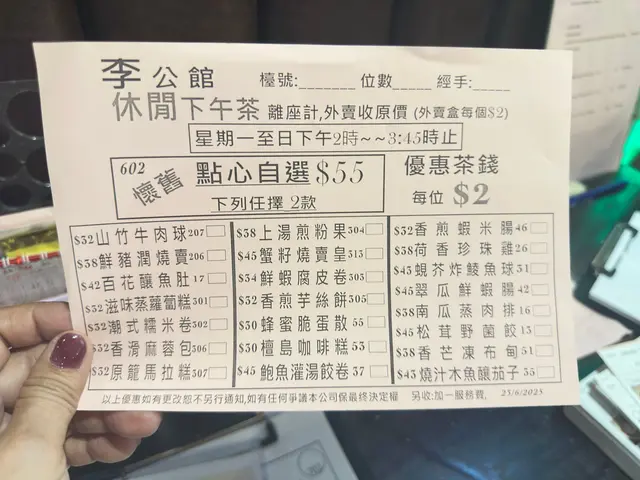 李公館 檯號:______ 位數_____ 經手:_____
休閒下午茶 離座計,外賣收原價 (外賣盒每個$2)
星期一至日下午2時~~3:45時止
602 懷舊 點心自選 $55
下列任擇 2款
優惠茶錢
每位 $2
$32山竹牛肉球207
$38鮮豬潤燒賣206
$42百花釀魚肚17
$32滋味蒸蘿蔔糕301
$32潮式糯米卷302
$32香滑麻蓉包306
$32原籠馬拉糕307
$38上湯煎粉果304
$45蟹籽燒賣皇313
$34鮮蝦腐皮卷303
$32香煎芋絲餅305
$30蜂蜜脆蛋散55
$30檀島咖啡糕53
$45鮑魚灌湯餃卷37
$32香煎蝦米腸46
$38荷香珍珠雞26
$43蜆芥炸鯪魚球31
$45翠瓜鮮蝦腸42
$38南瓜蒸肉排16
$45松茸野菌餃13
$38香芒凍布甸51
$43燒汁木魚釀茄子35
以上優惠如有更改恕不另行通知,如有任何爭議本公司保最終決定權 另收:加一服務費, 25/6/2025